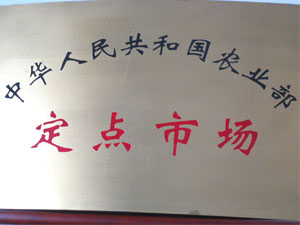 中华人民共和国农业部
定点市场